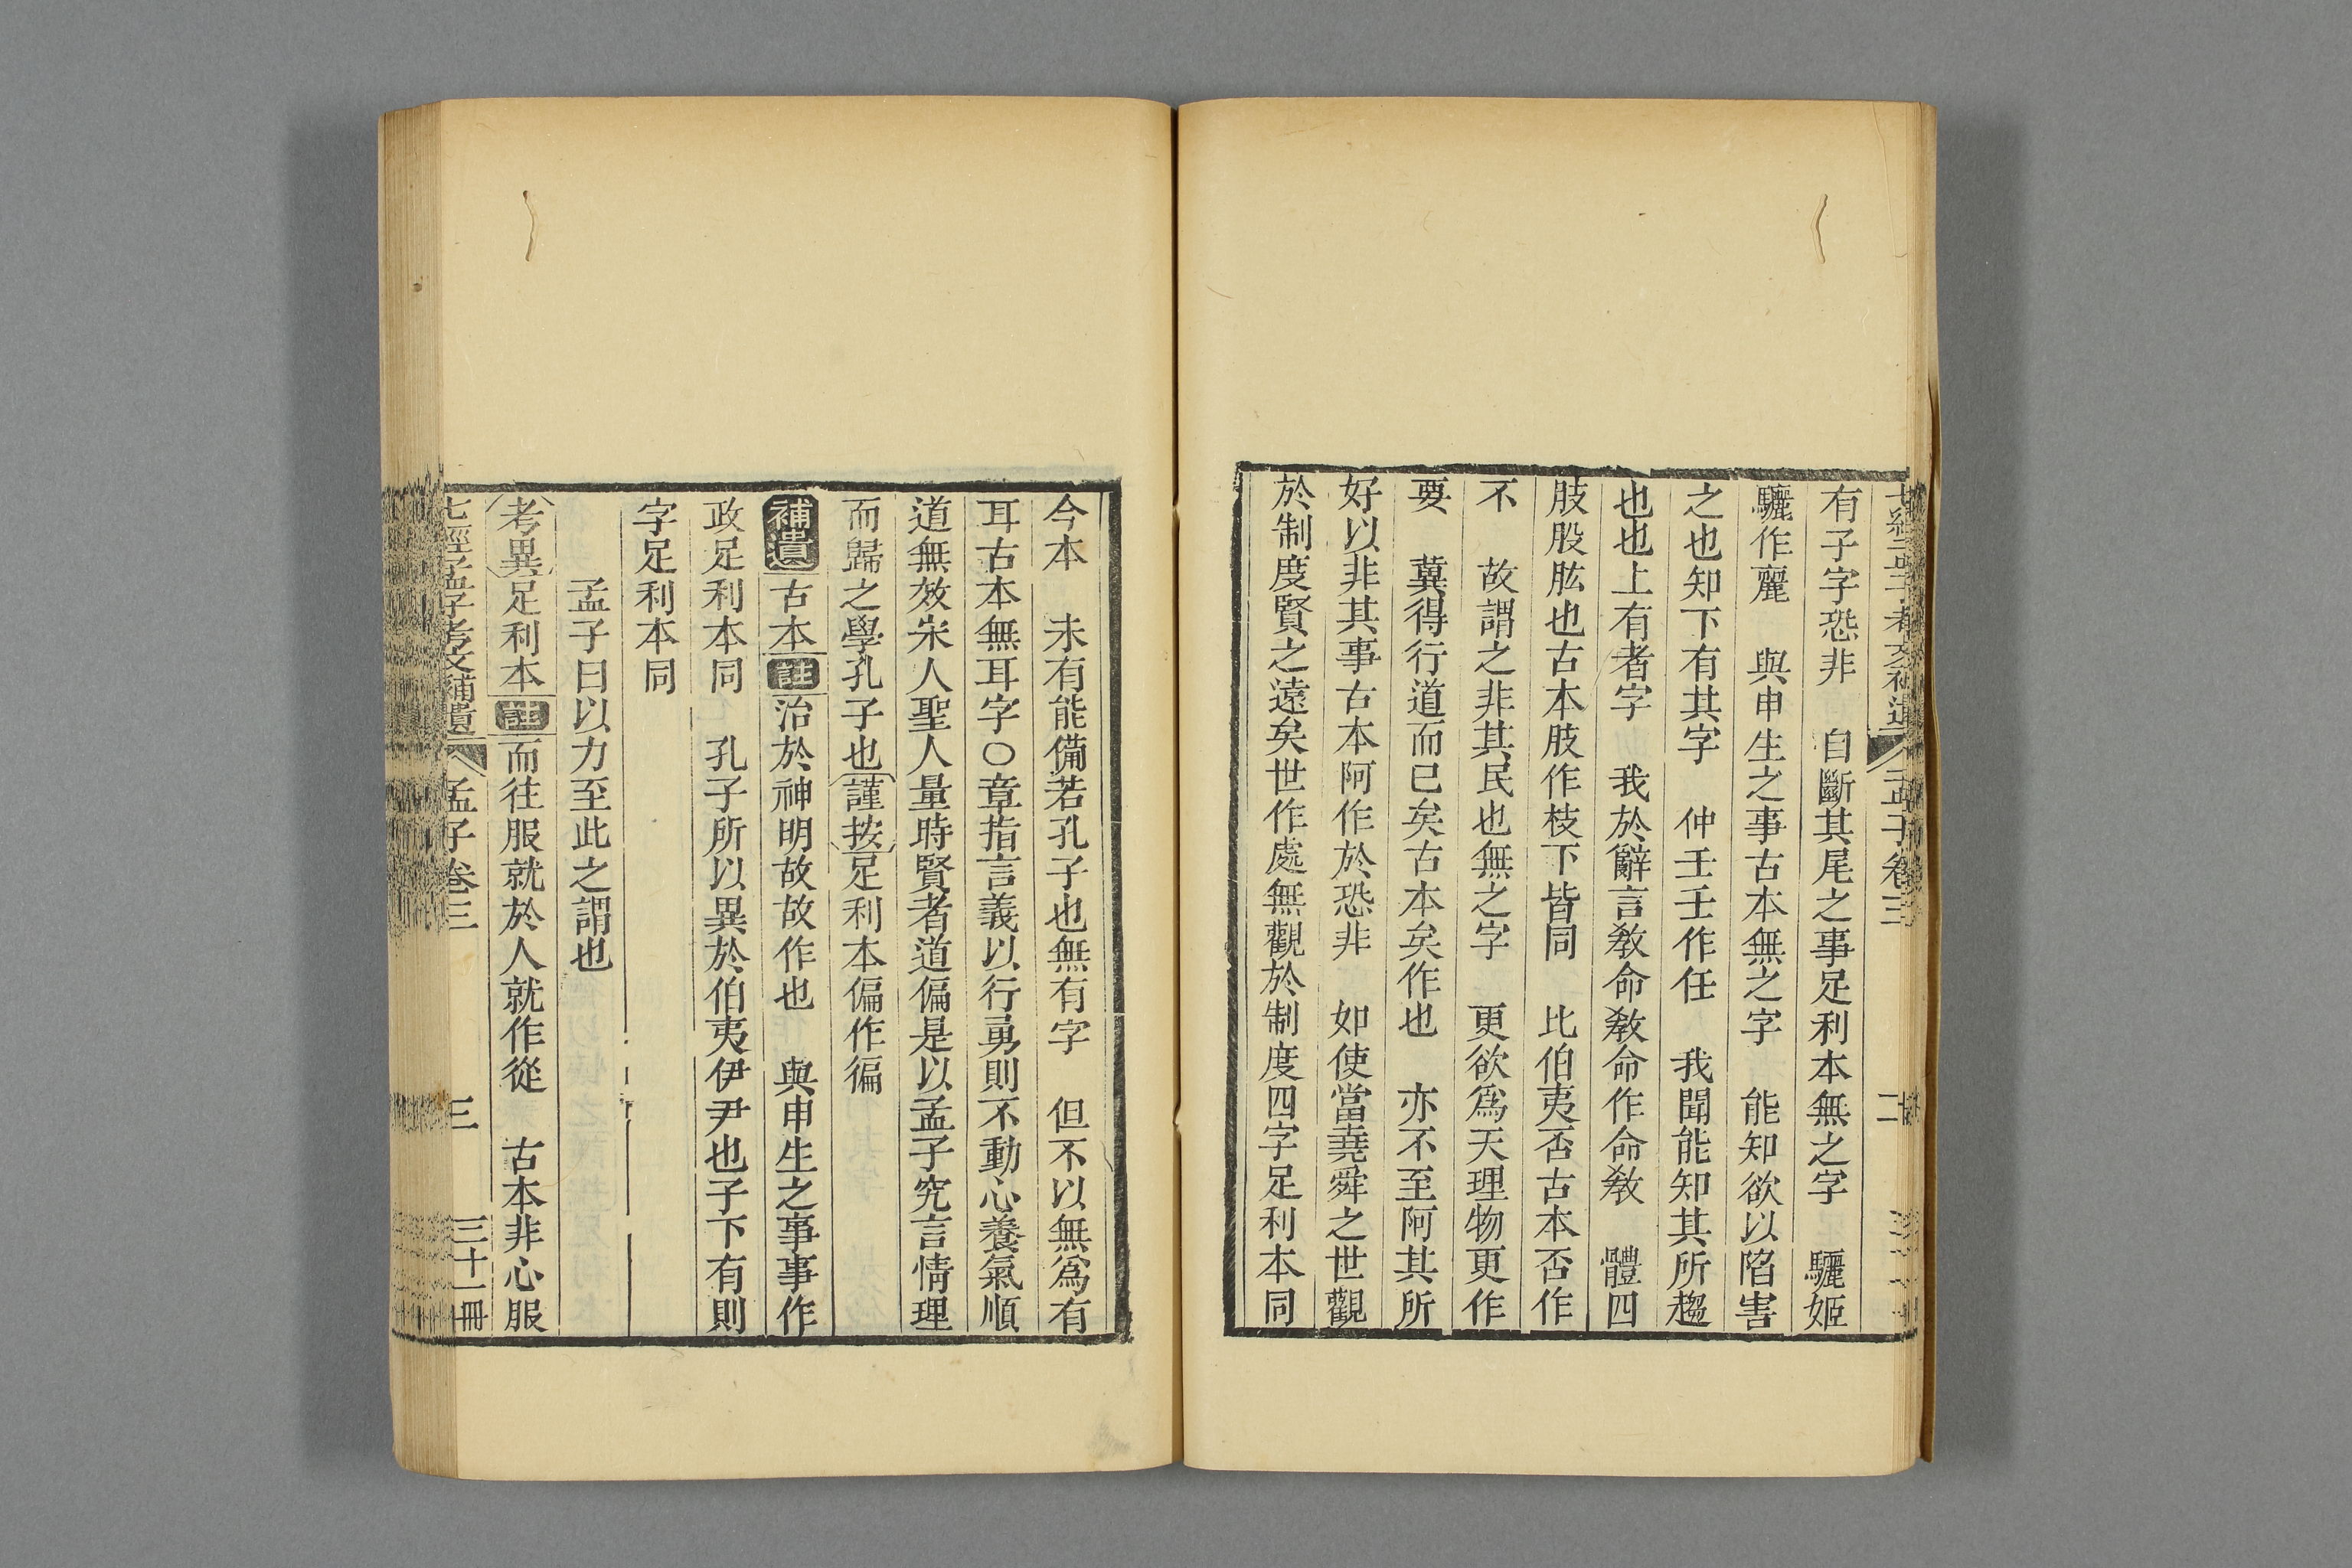 有子字恐非　自斷其尾之事足利本無之字　驪姬
驪作麗　與申生之事古本無之字　能知欲以陷害
之也知下有其字　仲壬壬作任　我聞能知其所趨
也也上有者字　我於辭言敎命敎命作命敎　體四
肢股肱也古本肢作枝下皆同　比伯夷否古本否作
不　故謂之非其民也無之字　更欲爲天理物更作
要　冀得行道而已矣古本矣作也　亦不至阿其所
好以非其事古本阿作於恐非　如使當堯舜之世觀
於制度賢之遠矣世作處無觀於制度四字足利本同
今本　未有能備若孔子也無有字　但不以無爲有
耳古本無耳字○章指言義以行勇則不動心養氣順
道無效宋人聖人量時賢者道偏是以孟子究言情理
而歸之學孔子也謹按足利本偏作徧
補遺古本註治於神明故故作也　與申生之事事作
政足利本同　孔子所以異於伯夷伊尹也子下有則
字足利本同
孟子曰以力至此之謂也
考異足利本註而往服就於人就作從　古本非心服
七經孟子考文補遺　孟子卷三　三　三十一冊